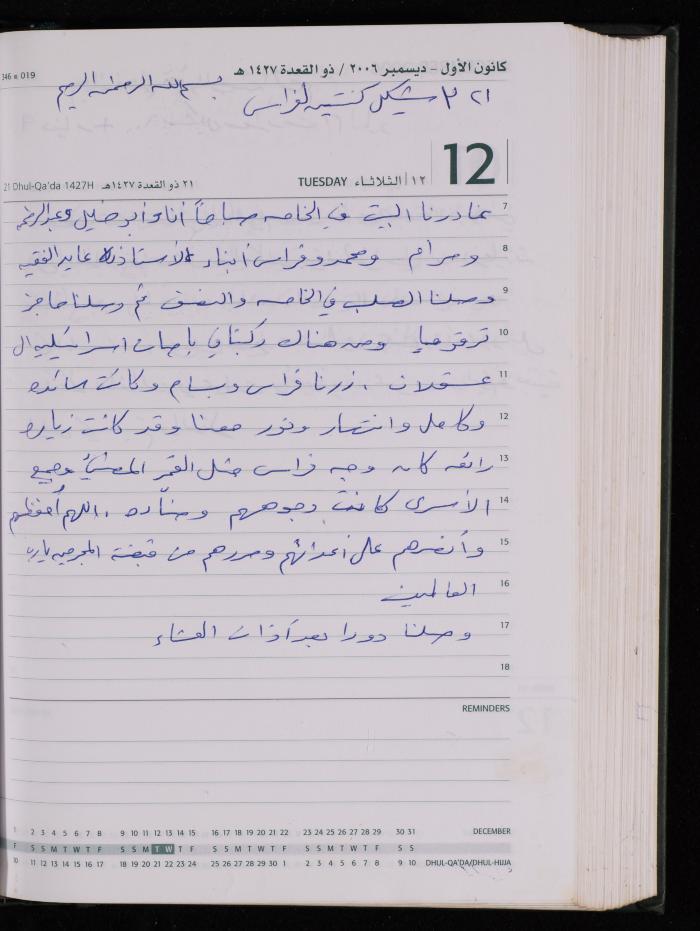 346 - 019
كانون الأول - ديسمبر ٢٠٠٦ / ذو القعدة ١٤٢٧ هـ
بسم الله الرحمن الرحيم
٢١ شيكل كنتين لفراس
12
21 Dhul-Qa'da 1427H ٢١ ذو القعدة ١٤٢٧هـ TUESDAY ١٢ الثلاثاء
7 غادرنا البيت في الخامسة صباحاً أنا وأبو خليل وعبد الرحيم
8 ومرام ومحمد وفراس أبناء الأستاذ عايد الفقيه
9 وصلنا الصلب في الخامسة والنصف ثم وصلنا حاجز
10 ترقوميا ومن هناك ركبنا في باصات اسرائيلية ال
11 عسقلان . زرنا فراس وبسام وكانت مائده
12 وكامل وانتصار ونور معنا وقد كانت زيارة
13 رائعة كان وجه فراس مثل القمر المضيئ وجميع
14 الأسرى كانت وجوههم وضاءه . اللهم أحفظهم
15 وأنصرهم على أعدائهم وحررهم من قبضة المجرمين يارب
16 العالمين
17 وصلنا دورا بعد آذان العشاء
18
REMINDERS
1 2 3 4 5 6 7 8 9 10 11 12 13 14 15 16 17 18 19 20 21 22 23 24 25 26 27 28 29 30 31 DECEMBER
F S S M T W T F S S M T W T F S S M T W T F S S M T W T F S S
10 11 12 13 14 15 16 17 18 19 20 21 22 23 24 25 26 27 28 29 30 1 2 3 4 5 6 7 8 9 10 DHUL-QA'DA/DHUL-HIJJA